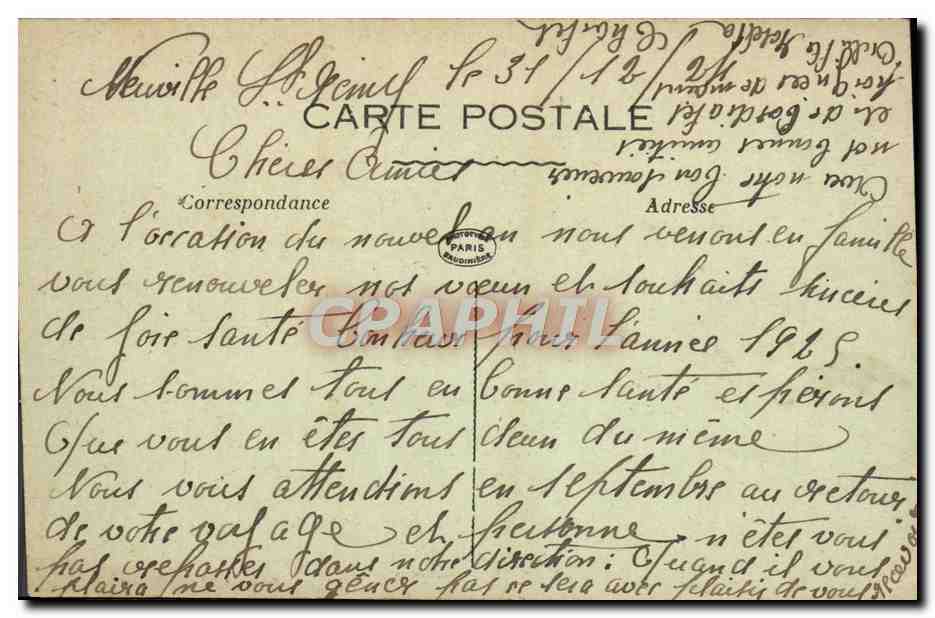 Neuville St Remy le 31/12/24
CARTE POSTALE
Chères Amies
Correspondance
Adresse
PHOTOTYPIE
PARIS
BAUDINIÈRE
A l'occasion du nouvel an nous venons en famille
vous renouveler nos vœux et souhaits sincères
de joie santé bonheur pour l'année 1925.
CPAPHIL
Nous sommes tous en bonne santé espérons
que vous en êtes tous deux du même
Nous vous attendions en septembre au retour
de votre voyage et personne n'êtes vous
pas repassés dans notre direction: Quand il vous
plaira ne vous gener pas se sera avec plaisir de vous
recevoir
Avec notre bon souvenir
nos bonnes amitiés
et de cordiales
poignées de mains
Charles